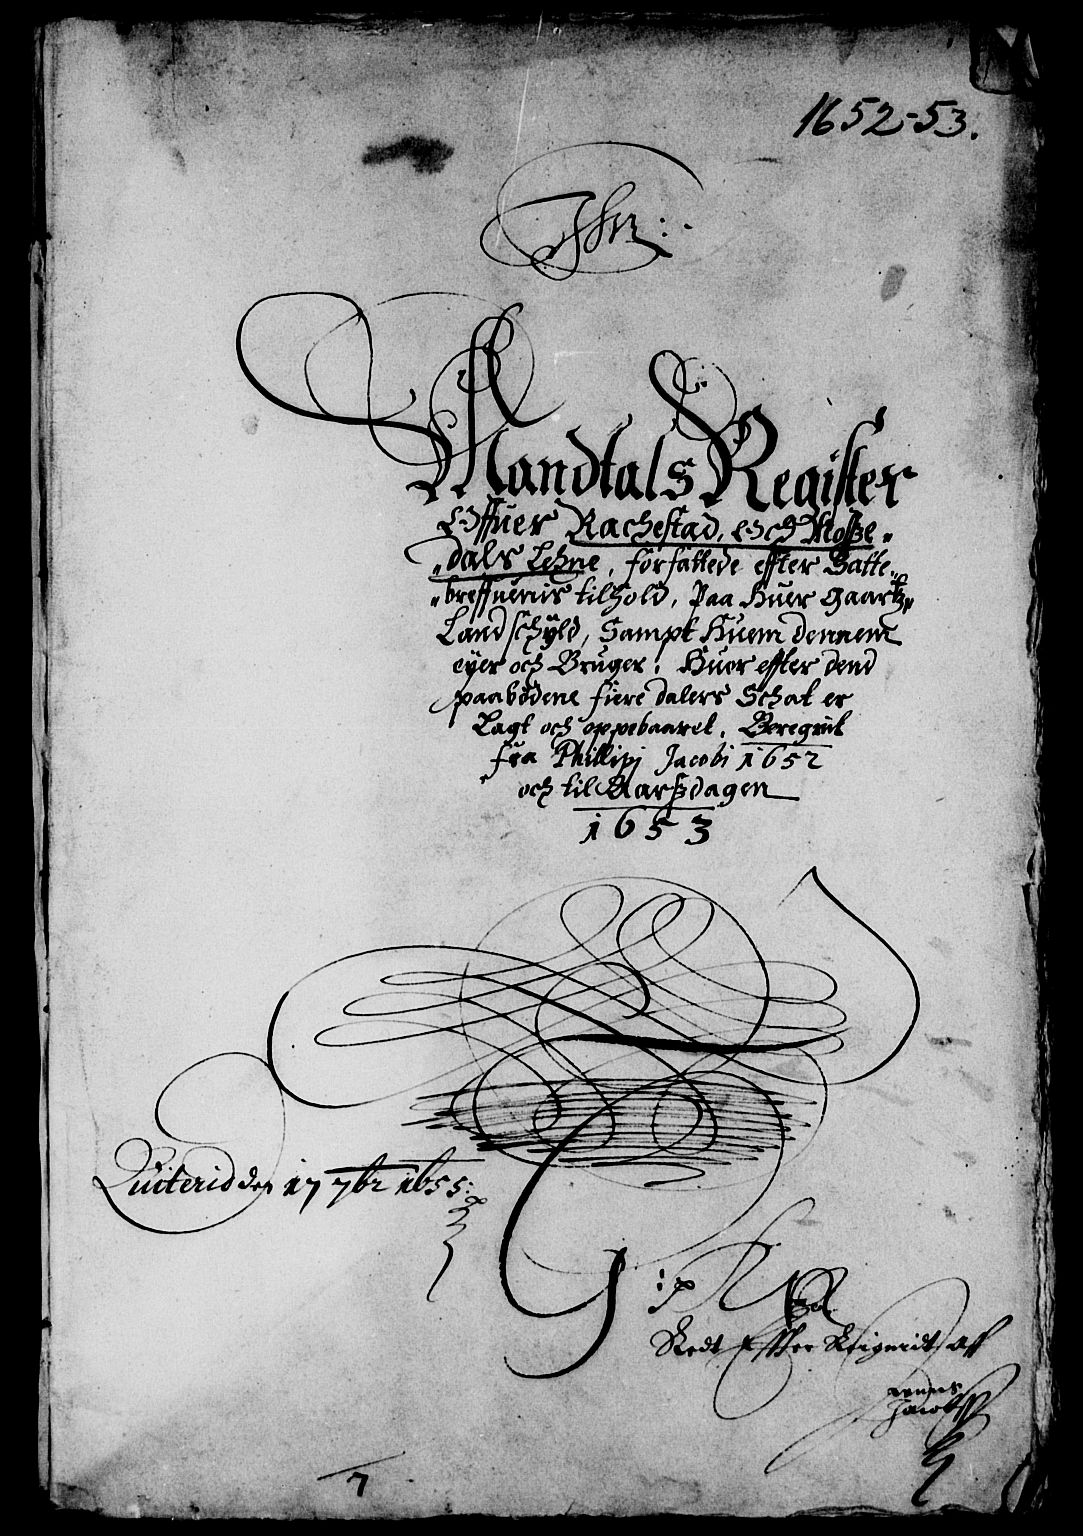 1652-53.
Mandtals Register
Offuer Rachestad, och Mosse-
dals Lehne, forfattede effter Satte-
breffuernis tilhold, Paa Huer gaartz
Landschÿld, Sampt Huem dennem
eyer och Bruger, Huor effter dend
paabödene fiere dalers Schat er
Lagt och oppebaaret, Beregnit
fra Phillipj Jacobi 1652
och til Aarszdagen
1653
Quiterid den 17 7br 1655:
Redt Effter Reignidt Aff
Jacobss
7